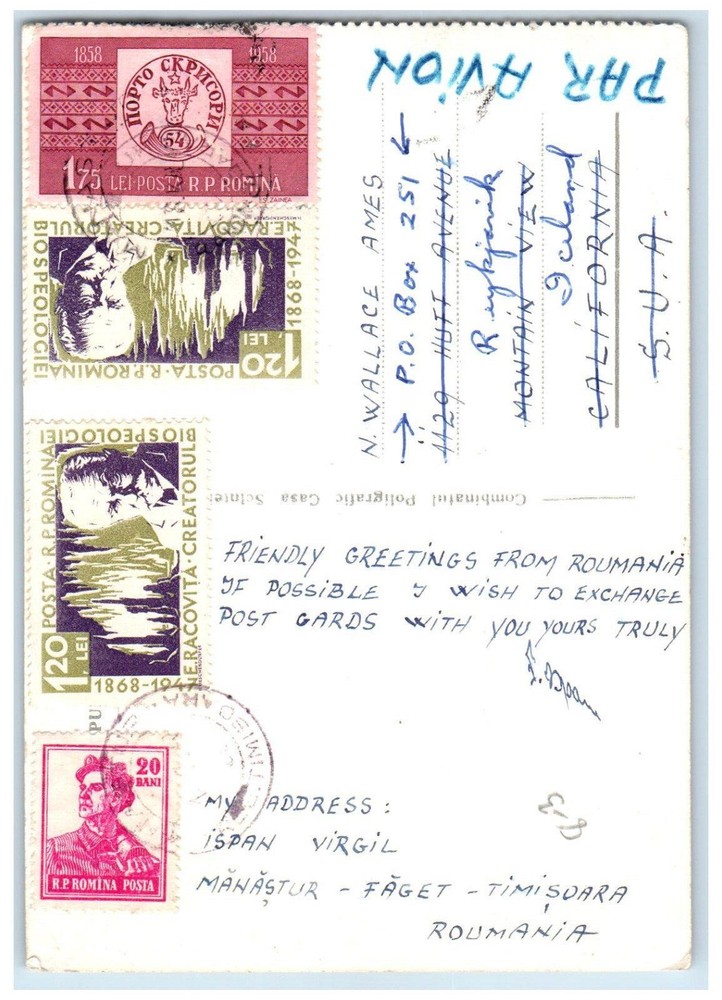 1858 1958
ПОРТО СКРИСОРИ
54
1.75 LEI·POSTA R.P. ROMINA
E.RACOVITA·CREATORUL
BIOSPEOLOGIEI
1868-1947
1.20 LEI
POSTA·R.P.ROMINA
POSTA·R.P.ROMINA
BIOSPEOLOGIEI
E.RACOVITA·CREATORUL
1.20 LEI
1868-1947
20 BANI
R.P. ROMINA POSTA
PAR AVION
N. WALLACE AMES
→ P.O. Box 251 ←
1129 HUFF AVENUE
Reykjavik
MONTAIN VIEW
Iceland
CALIFORNIA
S.U.A.
Combinatul Poligrafic Casa Scînteii
FRIENDLY GREETINGS FROM ROUMANIA
IF POSSIBLE I WISH TO EXCHANGE
POST CARDS WITH YOU YOURS TRULY
MY ADDRESS:
ISPAN VIRGIL
MĂNĂȘTUR - FĂGET - TIMIȘOARA
ROUMANIA